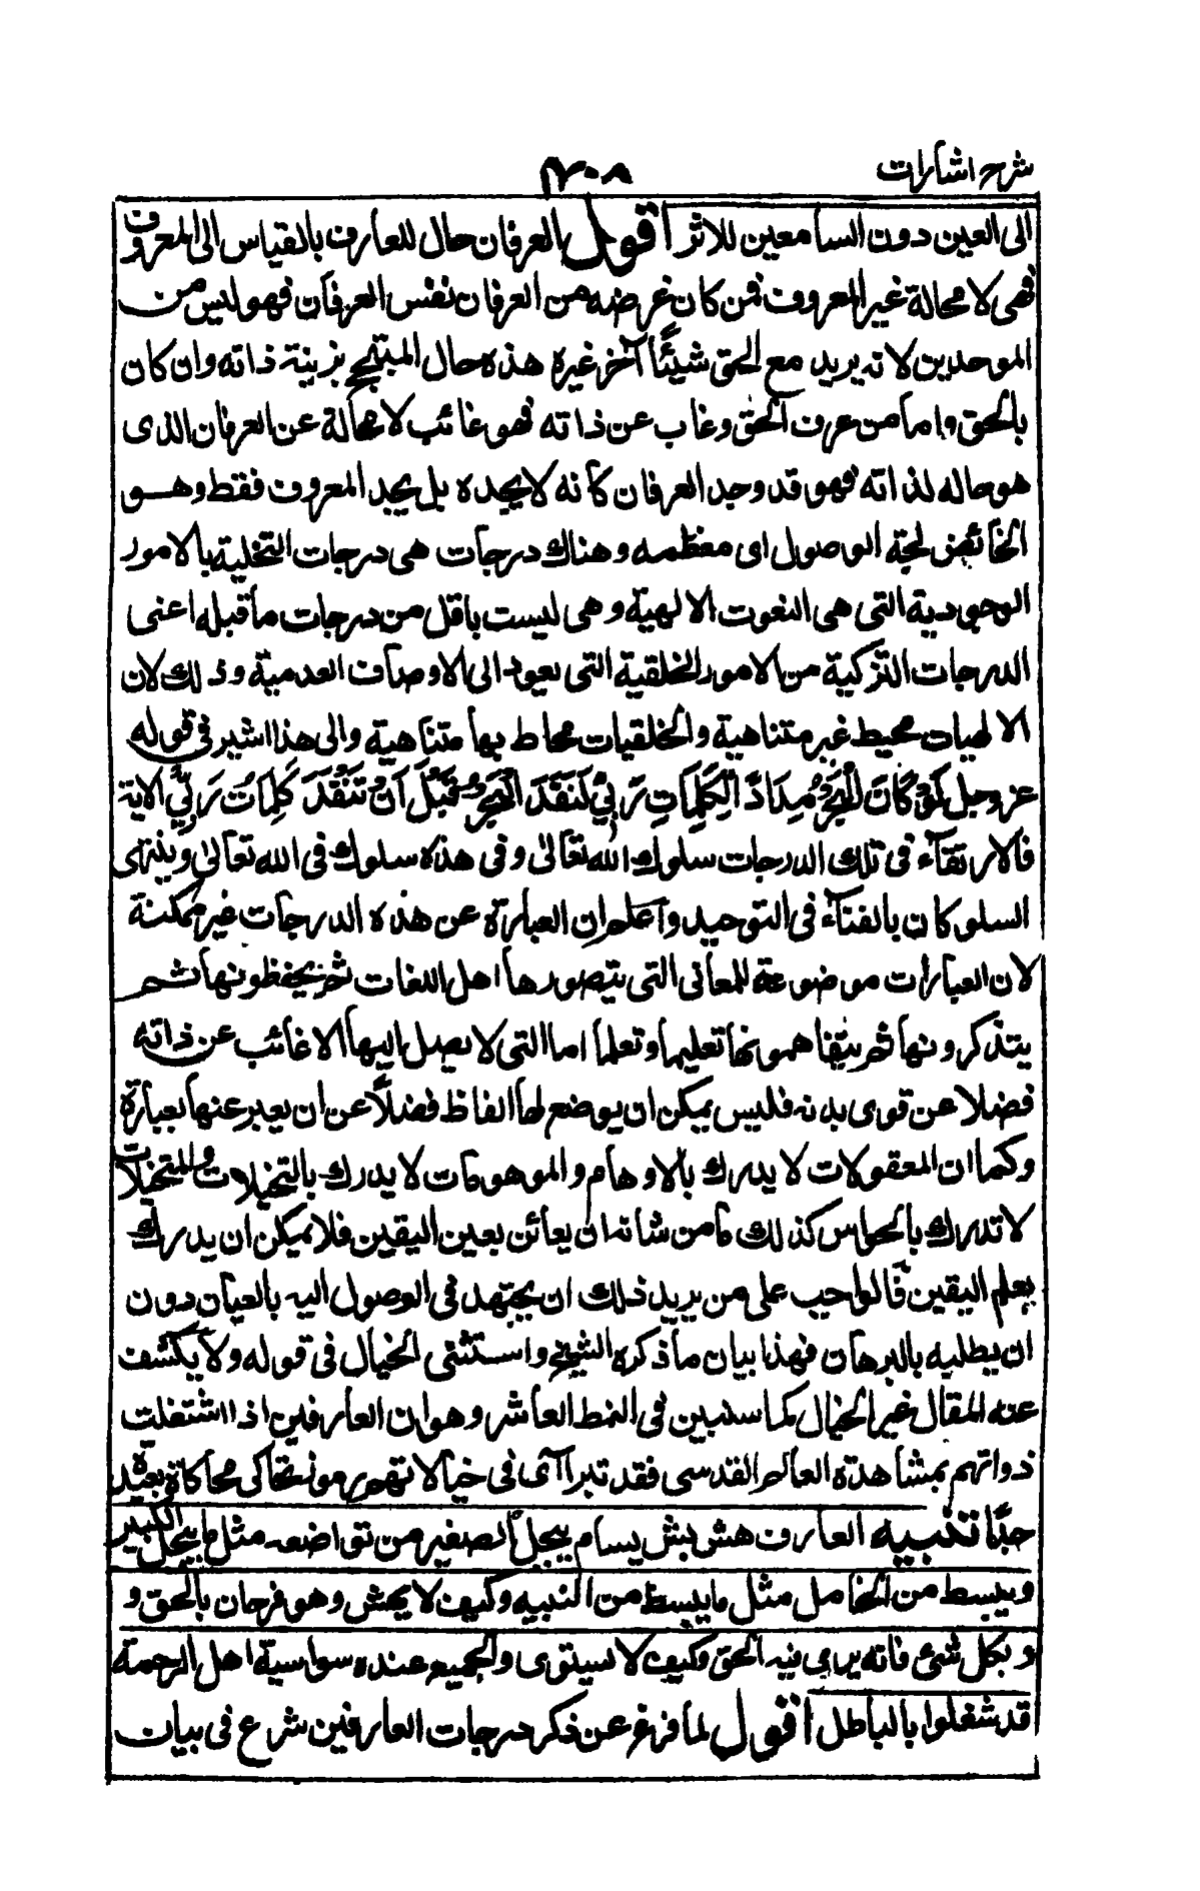 شرح اشارات
٢٠٨
الى العين دون السامعين للاثر اقول العرفان حال للعارف بالقياس الى المعروف
فهى لا محالة غير المعروف فمن كان غرضه من العرفان نفس العرفان فهو ليس من
الموحدين لانه يريد مع الحق شيئًا آخر غيره هذه حال المبتهج بزينة ذاته وان كان
بالحق واما من عرف الحق وغاب عن ذاته فهو غائب لا محالة عن العرفان الذى
هو حاله لذاته فهو قد وجد العرفان كانه لا يجده بل يجد المعروف فقط وهو
الخائض لجة الوصول اى معظمه وهناك درجات هى درجات التخلية بالامور
الوجودية التى هى النعوت الالهية وهى ليست باقل من درجات ما قبله اعنى
الدرجات التزكية من الامور الخلقية التى يعود الى الاوصاف العدمية وذلك لان
الالهيات محيط غير متناهية والخلقيات محاط بها متناهية والى هذا اشير فى قوله
عز وجل لَوْ كَانَ الْبَحْرُ مِدَادًا لِكَلِمَاتِ رَبِّيْ لَنَفِدَ الْبَحْرُ قَبْلَ اَنْ تَنْفَدَ كَلِمَاتُ رَبِّيْ الاية
فالارتقاء فى تلك الدرجات سلوك الى الله تعالى وفى هذه سلوك فى الله تعالى وينتهى
السلوكان بالفناء فى التوحيد واعلم ان العبارة عن هذه الدرجات غير ممكنة
لان العبارات موضوعة للمعانى التى يتصورها اهل اللغات ثم يحفظونها ثم
يتذكرونها ثم يتفاهمونها تعليما وتعلما اما التى لا يصل اليها الا غائب عن ذاته
فضلا عن قوى بدنه فليس يمكن ان يوضع لها الفاظ فضلًا عن ان يعبر عنها بعبارة
وكما ان المعقولات لا يدرك بالاوهام والموهومات لا يدرك بالتخيلات والمتخيلات
لا تدرك بالحواس كذلك ما من شانه ان يعائن بعين اليقين فلا يمكن ان يدرك
بعلم اليقين فالواجب على من يريد ذلك ان يجتهد فى الوصول اليه بالعيان دون
ان يطلبه بالبرهان فهذا بيان ما ذكره الشيخ واستثنى الخيال فى قوله ولا يكشف
عنه المقال غير الخيال لما سنبين فى النمط العاشر وهو ان العارفين اذا اشتغلت
ذواتهم بمشاهدة العالم القدسى فقد تبراآى فى خيالاتهم امور تحاكى محاكاة بعيدة
جدًا تنبيه العارف هش بش بسام يبجل الصغير من تواضعه مثل ما يبجل الكبير
ويبسط من الخامل مثل ما يبسط من النبيه وكيف لا يهش وهو فرحان بالحق و
و بكل شئ فانه يرى فيه الحق وكيف لا يستوى والجميع عنده سواسية اهل الرحمة
قد شغلوا بالباطل اقول لما فرغ عن ذكر درجات العارفين شرع فى بيان